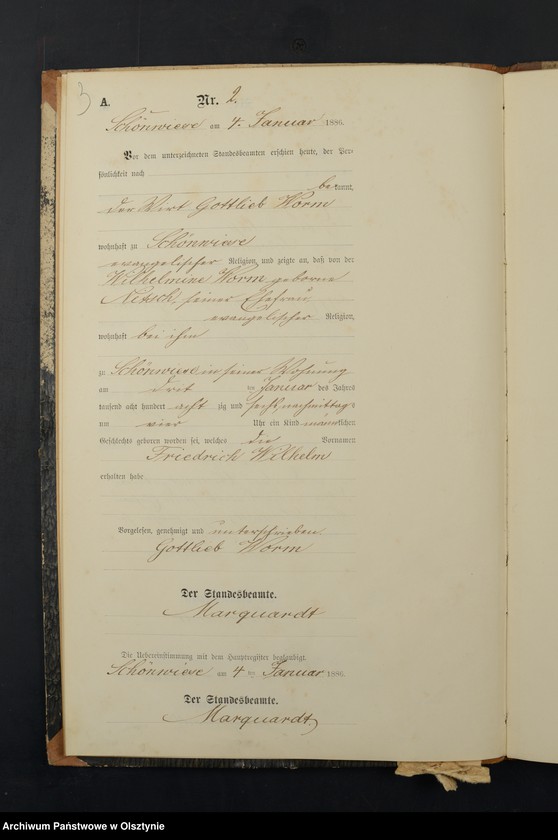 3
A.
Nr. 2.
Schönwiese am 4. Januar 1886.
Vor dem unterzeichneten Standesbeamten erschien heute, der Per-
sönlichkeit nach
bekannt,
der Wirt Gottlieb Worm
wohnhaft zu Schönwiese
evangelischer Religion, und zeigte an, daß von der
Wilhelmine Worm geborne
Nitsch, seiner Ehefrau
evangelischer Religion,
wohnhaft bei ihm
zu Schönwiese in seiner Wohnung
am dritten Januar des Jahres
tausend acht hundert achtzig und sechs, nachmittags
um vier Uhr ein Kind männlichen
Geschlechts geboren worden sei, welches die Vornamen
Friedrich Wilhelm
erhalten habe
Vorgelesen, genehmigt und unterschrieben.
Gottlieb Worm
Der Standesbeamte.
Marquardt
Die Uebereinstimmung mit dem Hauptregister beglaubigt
Schönwiese am 4 ten Januar 1886.
Der Standesbeamte.
Marquardt
Archiwum Państwowe w Olsztynie